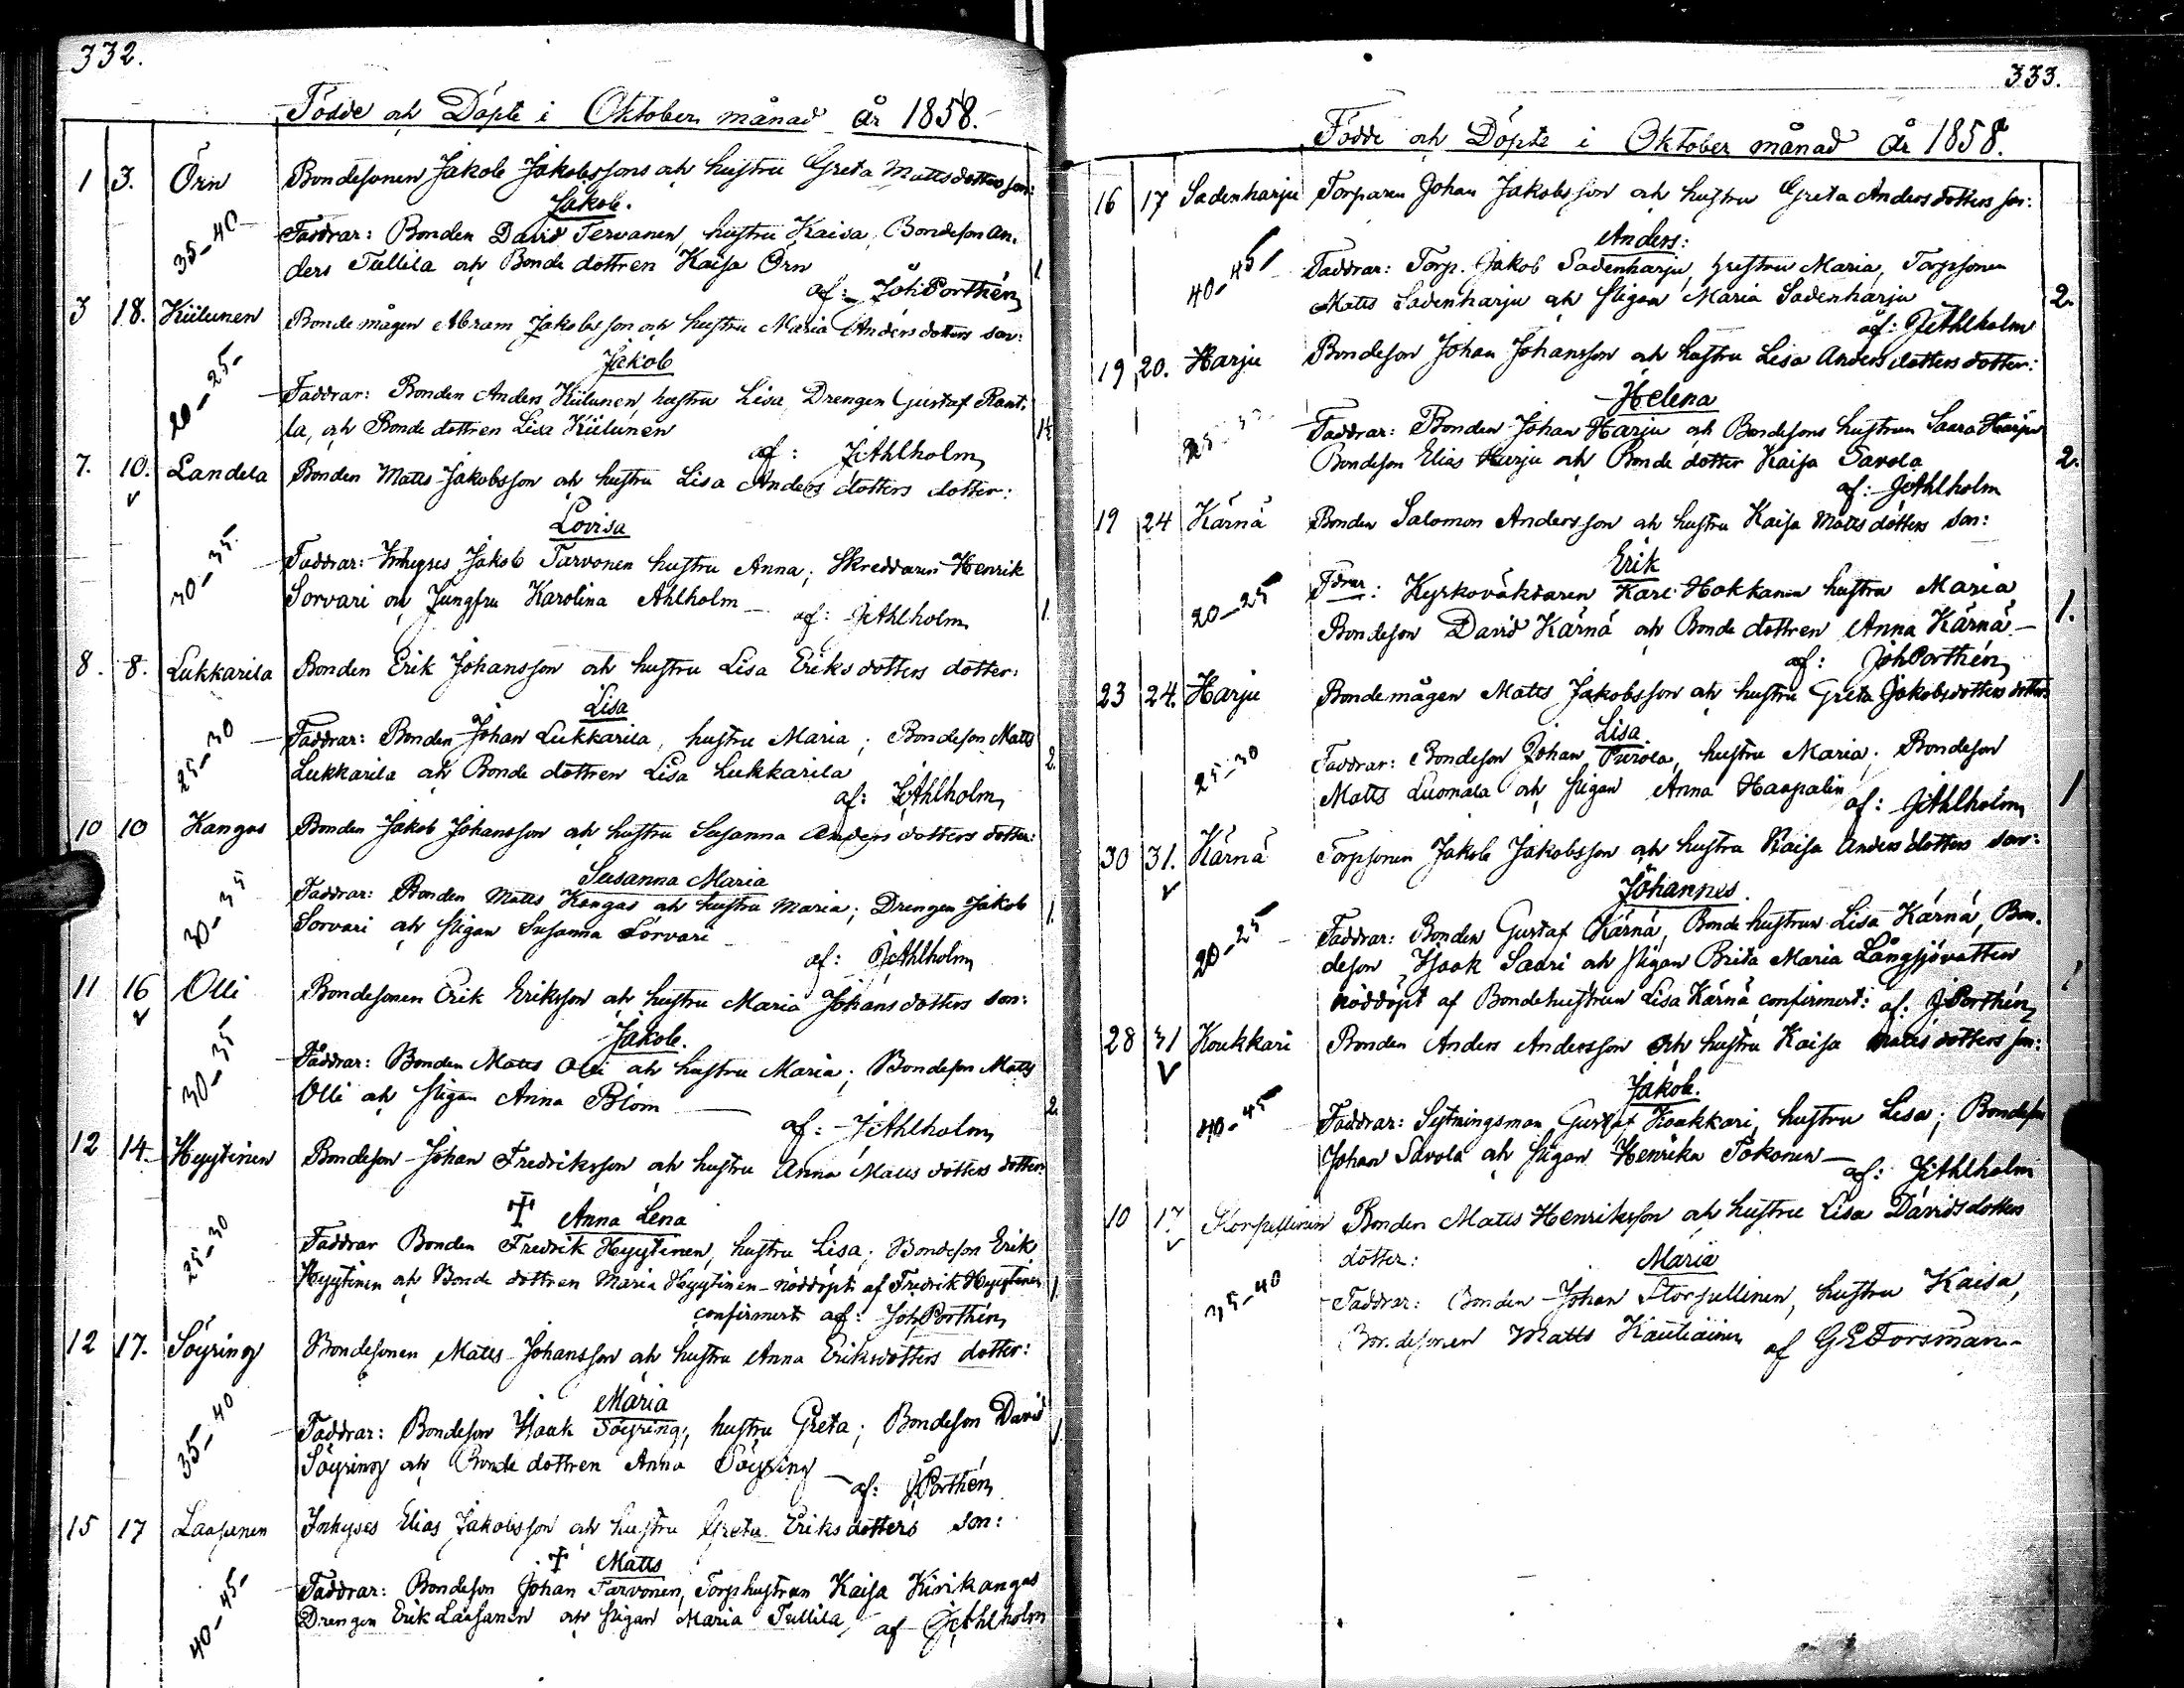 332.
Födde och Döpte i Oktober månad år 1858.
1 3. Örn Bondesonen Jakob Jakobssons och hustru Greta Mattsdotters son:
Jakob.
35-40 Faddrar: Bonden David Tervanen, hustru Kaisa, Bondeson An-
ders Tullila och Bonde dottren Kaisa Örn 1
af: Joh Porthén
3 18. Kiilunen Bondemågen Abram Jakobsson och hustru Maria Anders dotters son:
Jakob
20-25- Faddrar: Bonden Anders Kiilunen, hustru Lisa, Drengen Gustaf Rant-
la, och Bonde dottren Lisa Kiilunen
af: J Ahlholm
7. 10. Landela Bonden Matts Jakobsson och hustru Lisa Anders dotters dotter:
Lovisa
30-35. Faddrar: Inhyses Jakob Tarvonen hustru Anna; Skreddaren Henrik
Sorvari och Jungfru Karolina Ahlholm 1.
af: J Ahlholm
8. 8. Lukkarila Bonden Erik Johansson och hustru Lisa Eriks dotters dotter:
Lisa
25-30 Faddrar: Bonden Johan Lukkarila, hustru Maria; Bondeson Matts
Lukkarila och Bonde dottren Lisa Lukkarila 2.
af: J Ahlholm
10 10 Kangas Bonden Jakob Johansson och hustru Susanna Anders dotters dotter:
Susanna Maria
30-35 Faddrar: Bonden Matts Kangas och hustru Maria; Drengen Jakob
Sorvari och pigan Susanna Sorvari 1.
af: J Ahlholm
11 16 Olli Bondesonen Erik Eriksson och hustru Maria Johans dotters son:
Jakob.
30-35 Faddrar: Bonden Matts Olli och hustru Maria; Bondeson Matts
Olli och pigan Anna Blom 2.
af: J Ahlholm
12 14. Hyytinen Bondeson Johan Fredriksson och hustru Anna Matts dotters dotter:
Anna Lena
25-30 Faddrar Bonden Fredrik Hyytinen, hustru Lisa; Bondeson Erik
Hyytinen och Bonde dottren Maria Hyytinen - nöddöpt af Fredrik Hyytinen 1
confirmert af: Joh Porthén
12 17. Söyring Bondesonen Matts Johansson och hustru Anna Eriksdotters dotter:
Maria
35-40 Faddrar: Bondeson Isaak Söyring, hustru Greta; Bondeson David
Söyring och Bonde dottren Anna Söyring
af: J Porthén
15 17 Laasanen Inhyses Elias Jakobsson och hustru Greta Eriks dotters son:
Matts
40-45- Faddrar: Bondeson Johan Tarvonen, Torphustrun Kaisa Kivikangas
Drengen Erik Laasanen och pigan Maria Tullila, af J Ahlholm
333.
Födde och Döpte i Oktober månad år 1858.
16 17 Sadenharju Torparen Johan Jakobsson och hustru Greta Anders dotters son:
Anders:
40-45 Faddrar: Torp. Jakob Sadenharju, hustru Maria, Torpsonen
Matts Sadenharju och pigan Maria Sadenharju 2.
af: J Ahlholm
19 20. Harju Bondeson Johan Johansson och hustru Lisa Anders dotters dotter:
Helena
Faddrar: Bonden Johan Harju och Bondesons hustrun Saara Harju
Bondeson Elias Harju och Bonde dotter Kaisa Savola 2.
af: J Ahlholm
19 24 Kärnä Bonden Salomon Andersson och hustru Kaisa Matts dotters son:
Erik
20-25 Fdrar: Kyrkoväktaren Karl Hokkanen hustru Maria
Bondeson David Kärnä och Bonde dottren Anna Kärnä. 1.
af: Joh Porthén
23 24. Harju Bondemågen Matts Jakobsson och hustru Greta Jakobsdotters dotter
Lisa
25-30 Faddrar: Bondeson Johan Purola, hustru Maria; Bondeson
Matts Luomala och pigan Anna Haapalin 1
af: J Ahlholm
30 31. Kärnä Torpsonen Jakob Jakobsson och hustru Kaisa Anders dotters son:
Johannes.
20-25 Faddrar: Bonden Gustaf Kärnä, Bonde hustrun Lisa Kärnä, Bon-
deson Isaak Saari och pigan Brita Maria Långsjövatten
nöddöpt af Bondehustrun Lisa Kärnä confirmert: af. J Porthén
28 31 Koukkari Bonden Anders Andersson och hustru Kaisa Matts dotters son:
Jakob.
40-45 Faddrar: Sytningsman Gustaf Koukkari, hustru Lisa; Bondeson
Johan Savola och pigan Henrika Pokonen
af: J Ahlholm
10 17 Storpellinen Bonden Matts Henriksson och hustru Lisa Davidsdotters
dotter: Maria
35-40 Faddrar: Bonden Johan Storpellinen, hustru Kaisa,
Bondesonen Matts Kautiainen af G E Forsman